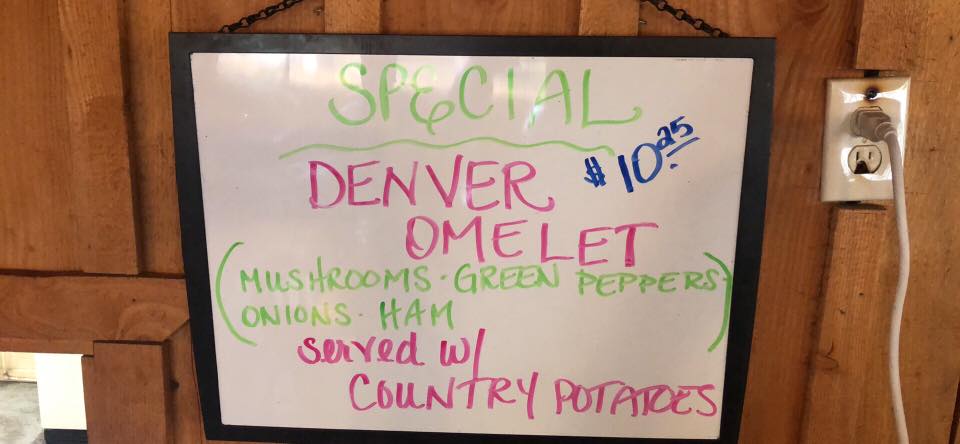 SPECIAL
$10.25
DENVER
OMELET
(MUSHROOMS · GREEN PEPPERS ·
ONIONS · HAM)
served w/
COUNTRY POTATOES